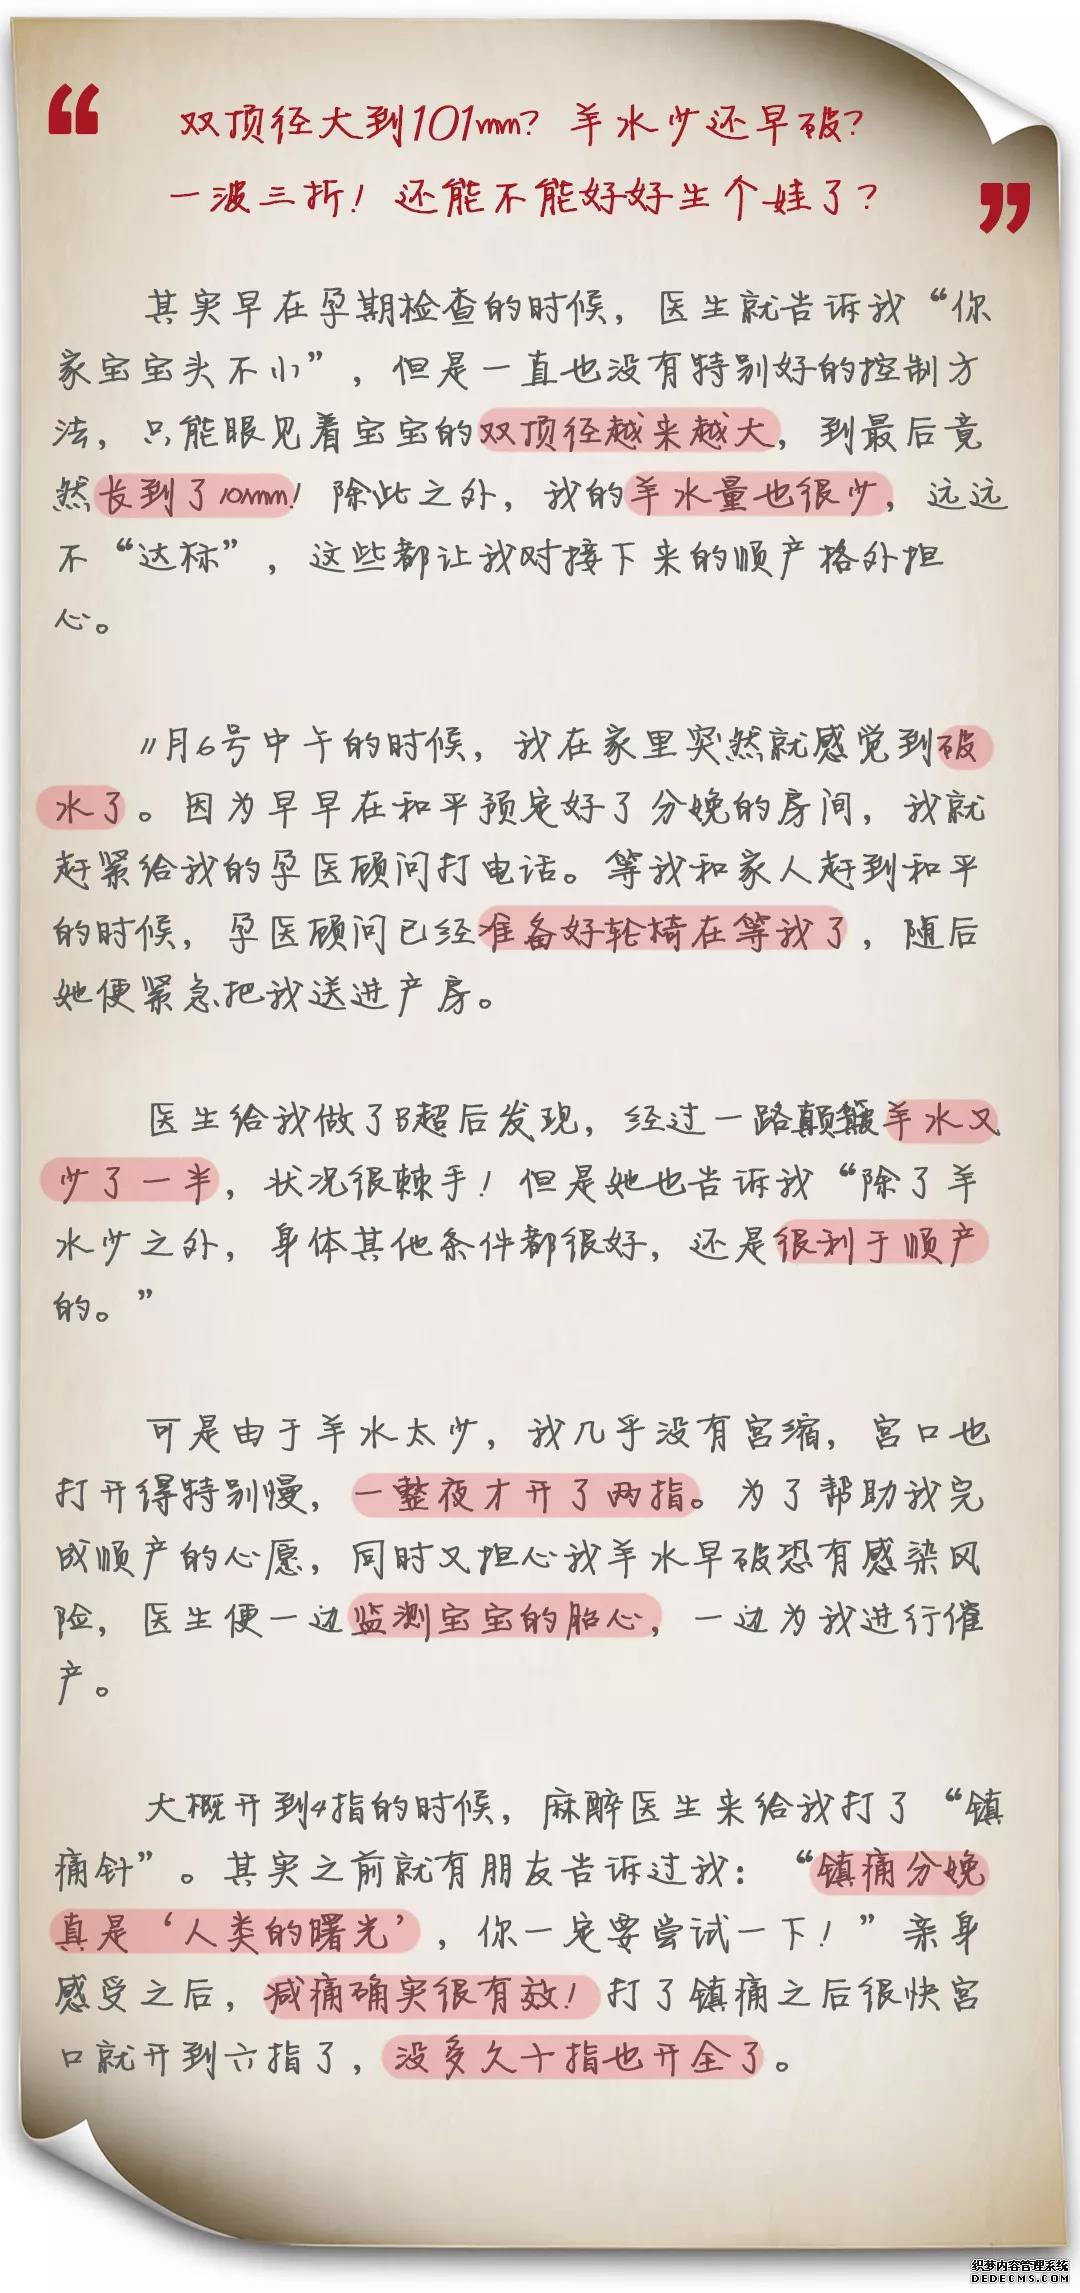 “ 双顶径大到101mm？羊水少还早破？
一波三折！还能不能好好生个娃了？ ”
其实早在孕期检查的时候，医生就告诉我“你
家宝宝头不小”，但是一直也没有特别好的控制方
法，只能眼见着宝宝的双顶径越来越大，到最后竟
然长到了101mm！除此之外，我的羊水量也很少，远远
不“达标”，这些都让我对接下来的顺产格外担
心。
11月6号中午的时候，我在家里突然就感觉到破
水了。因为早早在和平预定好了分娩的房间，我就
赶紧给我的孕医顾问打电话。等我和家人赶到和平
的时候，孕医顾问已经准备好轮椅在等我了，随后
她便紧急把我送进产房。
医生给我做了B超后发现，经过一路颠簸羊水又
少了一半，状况很棘手！但是她也告诉我“除了羊
水少之外，身体其他条件都很好，还是很利于顺产
的。”
可是由于羊水太少，我几乎没有宫缩，宫口也
打开得特别慢，一整夜才开了两指。为了帮助我完
成顺产的心愿，同时又担心我羊水早破恐有感染风
险，医生便一边监测宝宝的胎心，一边为我进行催
产。
大概开到4指的时候，麻醉医生来给我打了“镇
痛针”。其实之前就有朋友告诉过我：“镇痛分娩
真是‘人类的曙光’，你一定要尝试一下！”亲身
感受之后，减痛确实很有效！打了镇痛之后很快宫
口就开到六指了，没多久十指也开全了。
织梦内容管理系统
DEDECMS.COM